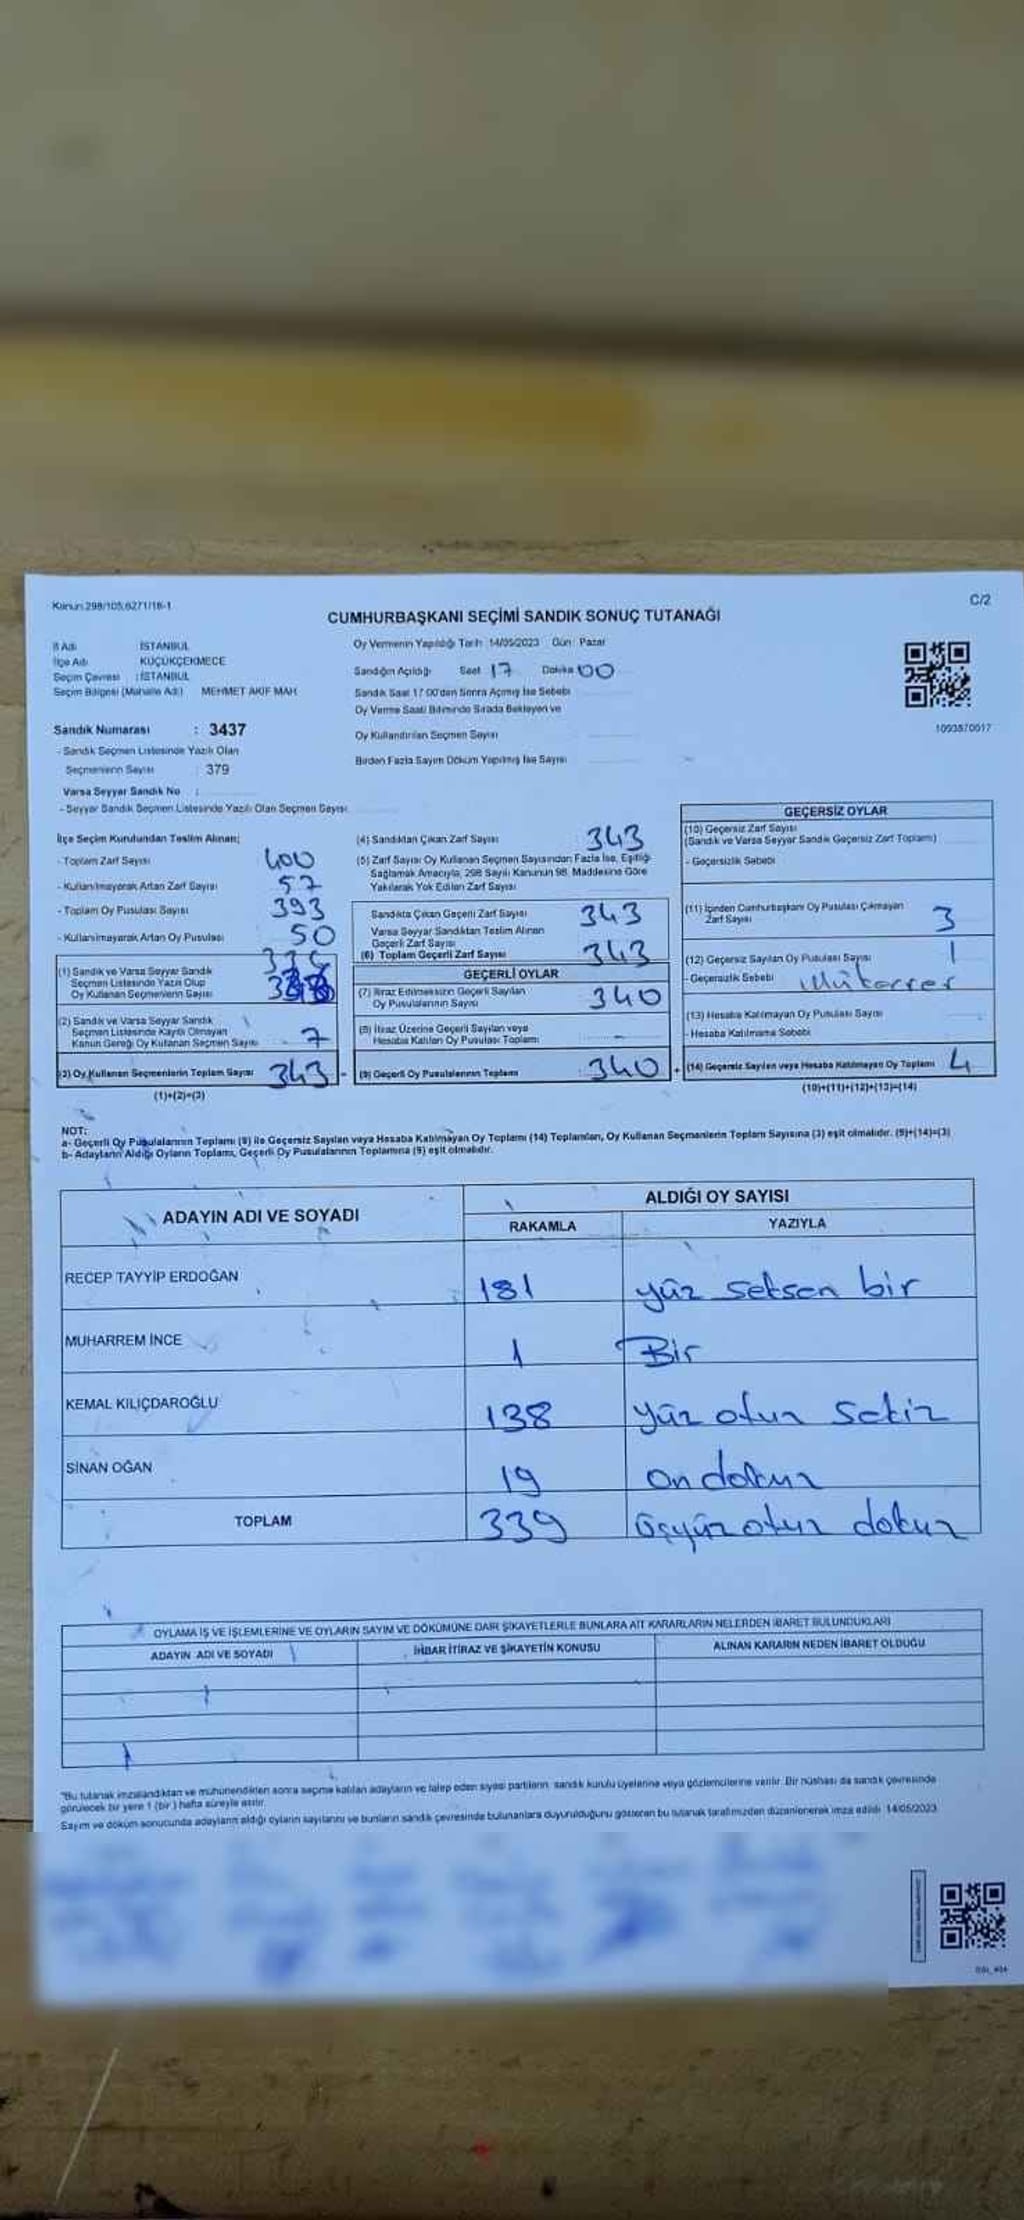 Kanun 298/105,6271/16-1
C/2
CUMHURBAŞKANI SEÇİMİ SANDIK SONUÇ TUTANAĞI
İl Adı İSTANBUL
İlçe Adı KÜÇÜKÇEKMECE
Seçim Çevresi : İSTANBUL
Seçim Bölgesi (Mahalle Adı) MEHMET AKİF MAH
Oy Vermenin Yapıldığı Tarih 14/05/2023 Gün: Pazar
Sandığın Açıldığı Saat 17 Dakika 00
Sandık Saat 17:00'den Sonra Açılmış İse Sebebi
Oy Verme Saati Bitiminde Sırada Bekleyen ve
Oy Kullandırılan Seçmen Sayısı
Birden Fazla Sayım Döküm Yapılmış İse Sayısı
1093870017
Sandık Numarası : 3437
- Sandık Seçmen Listesinde Yazılı Olan
Seçmenlerin Sayısı : 379
Varsa Seyyar Sandık No :
- Seyyar Sandık Seçmen Listesinde Yazılı Olan Seçmen Sayısı:
İlçe Seçim Kurulundan Teslim Alınan;
- Toplam Zarf Sayısı 400
- Kullanılmayarak Artan Zarf Sayısı 57
- Toplam Oy Pusulası Sayısı 393
- Kullanılmayarak Artan Oy Pusulası 50
(1) Sandık ve Varsa Seyyar Sandık
Seçmen Listesinde Yazılı Olup
Oy Kullanan Seçmenlerin Sayısı 336
(2) Sandık ve Varsa Seyyar Sandık
Seçmen Listesinde Kayıtlı Olmayan
Kanun Gereği Oy Kullanan Seçmen Sayısı 7
(3) Oy Kullanan Seçmenlerin Toplam Sayısı 343
(1)+(2)=(3)
(4) Sandıktan Çıkan Zarf Sayısı 343
(5) Zarf Sayısı Oy Kullanan Seçmen Sayısından Fazla İse, Eşitliği
Sağlamak Amacıyla, 298 Sayılı Kanunun 98. Maddesine Göre
Yakılarak Yok Edilen Zarf Sayısı
Sandıkta Çıkan Geçerli Zarf Sayısı 343
Varsa Seyyar Sandıktan Teslim Alınan
Geçerli Zarf Sayısı
(6) Toplam Geçerli Zarf Sayısı 343
GEÇERLİ OYLAR
(7) İtiraz Edilmeksizin Geçerli Sayılan
Oy Pusulalarının Sayısı 340
(8) İtiraz Üzerine Geçerli Sayılan veya
Hesaba Katılan Oy Pusulası Toplamı -
(9) Geçerli Oy Pusulalarının Toplamı : 340
GEÇERSİZ OYLAR
(10) Geçersiz Zarf Sayısı
(Sandık ve Varsa Seyyar Sandık Geçersiz Zarf Toplamı)
- Geçersizlik Sebebi
(11) İçinden Cumhurbaşkanı Oy Pusulası Çıkmayan
Zarf Sayısı 3
(12) Geçersiz Sayılan Oy Pusulası Sayısı 1
- Geçersizlik Sebebi Mükerrer
(13) Hesaba Katılmayan Oy Pusulası Sayısı
- Hesaba Katılmama Sebebi
(14) Geçersiz Sayılan veya Hesaba Katılmayan Oy Toplamı 4
(10)+(11)+(12)+(13)=(14)
NOT:
a- Geçerli Oy Pusulalarının Toplamı (9) ile Geçersiz Sayılan veya Hesaba Katılmayan Oy Toplamı (14) Toplamları, Oy Kullanan Seçmenlerin Toplam Sayısına (3) eşit olmalıdır. (9)+(14)=(3)
b- Adayların Aldığı Oyların Toplamı, Geçerli Oy Pusulalarının Toplamına (9) eşit olmalıdır.
ADAYIN ADI VE SOYADI
ALDIĞI OY SAYISI
RAKAMLA YAZIYLA
RECEP TAYYİP ERDOĞAN 181 yüz seksen bir
MUHARREM İNCE 1 Bir
KEMAL KILIÇDAROĞLU 138 yüz otuz sekiz
SİNAN OĞAN 19 on dokuz
TOPLAM 339 üçyüz otuz dokuz
OYLAMA İŞ VE İŞLEMLERİNE VE OYLARIN SAYIM VE DÖKÜMÜNE DAİR ŞİKAYETLERLE BUNLARA AİT KARARLARIN NELERDEN İBARET BULUNDUKLARI
ADAYIN ADI VE SOYADI İHBAR İTİRAZ VE ŞİKAYETİN KONUSU ALINAN KARARIN NEDEN İBARET OLDUĞU
"Bu tutanak imzalandıktan ve mühürlendikten sonra seçime katılan adayların ve talep eden siyasi partilerin sandık kurulu üyelerine veya gözlemcilerine verilir. Bir nüshası da sandık çevresinde
görülecek bir yere 1 (bir) hafta süreyle asılır.
Sayım ve döküm sonucunda adayların aldığı oyların sayılarını ve bunların sandık çevresinde bulunanlara duyurulduğunu gösteren bu tutanak tarafımızdan düzenlenerek imza edildi. 14/05/2023